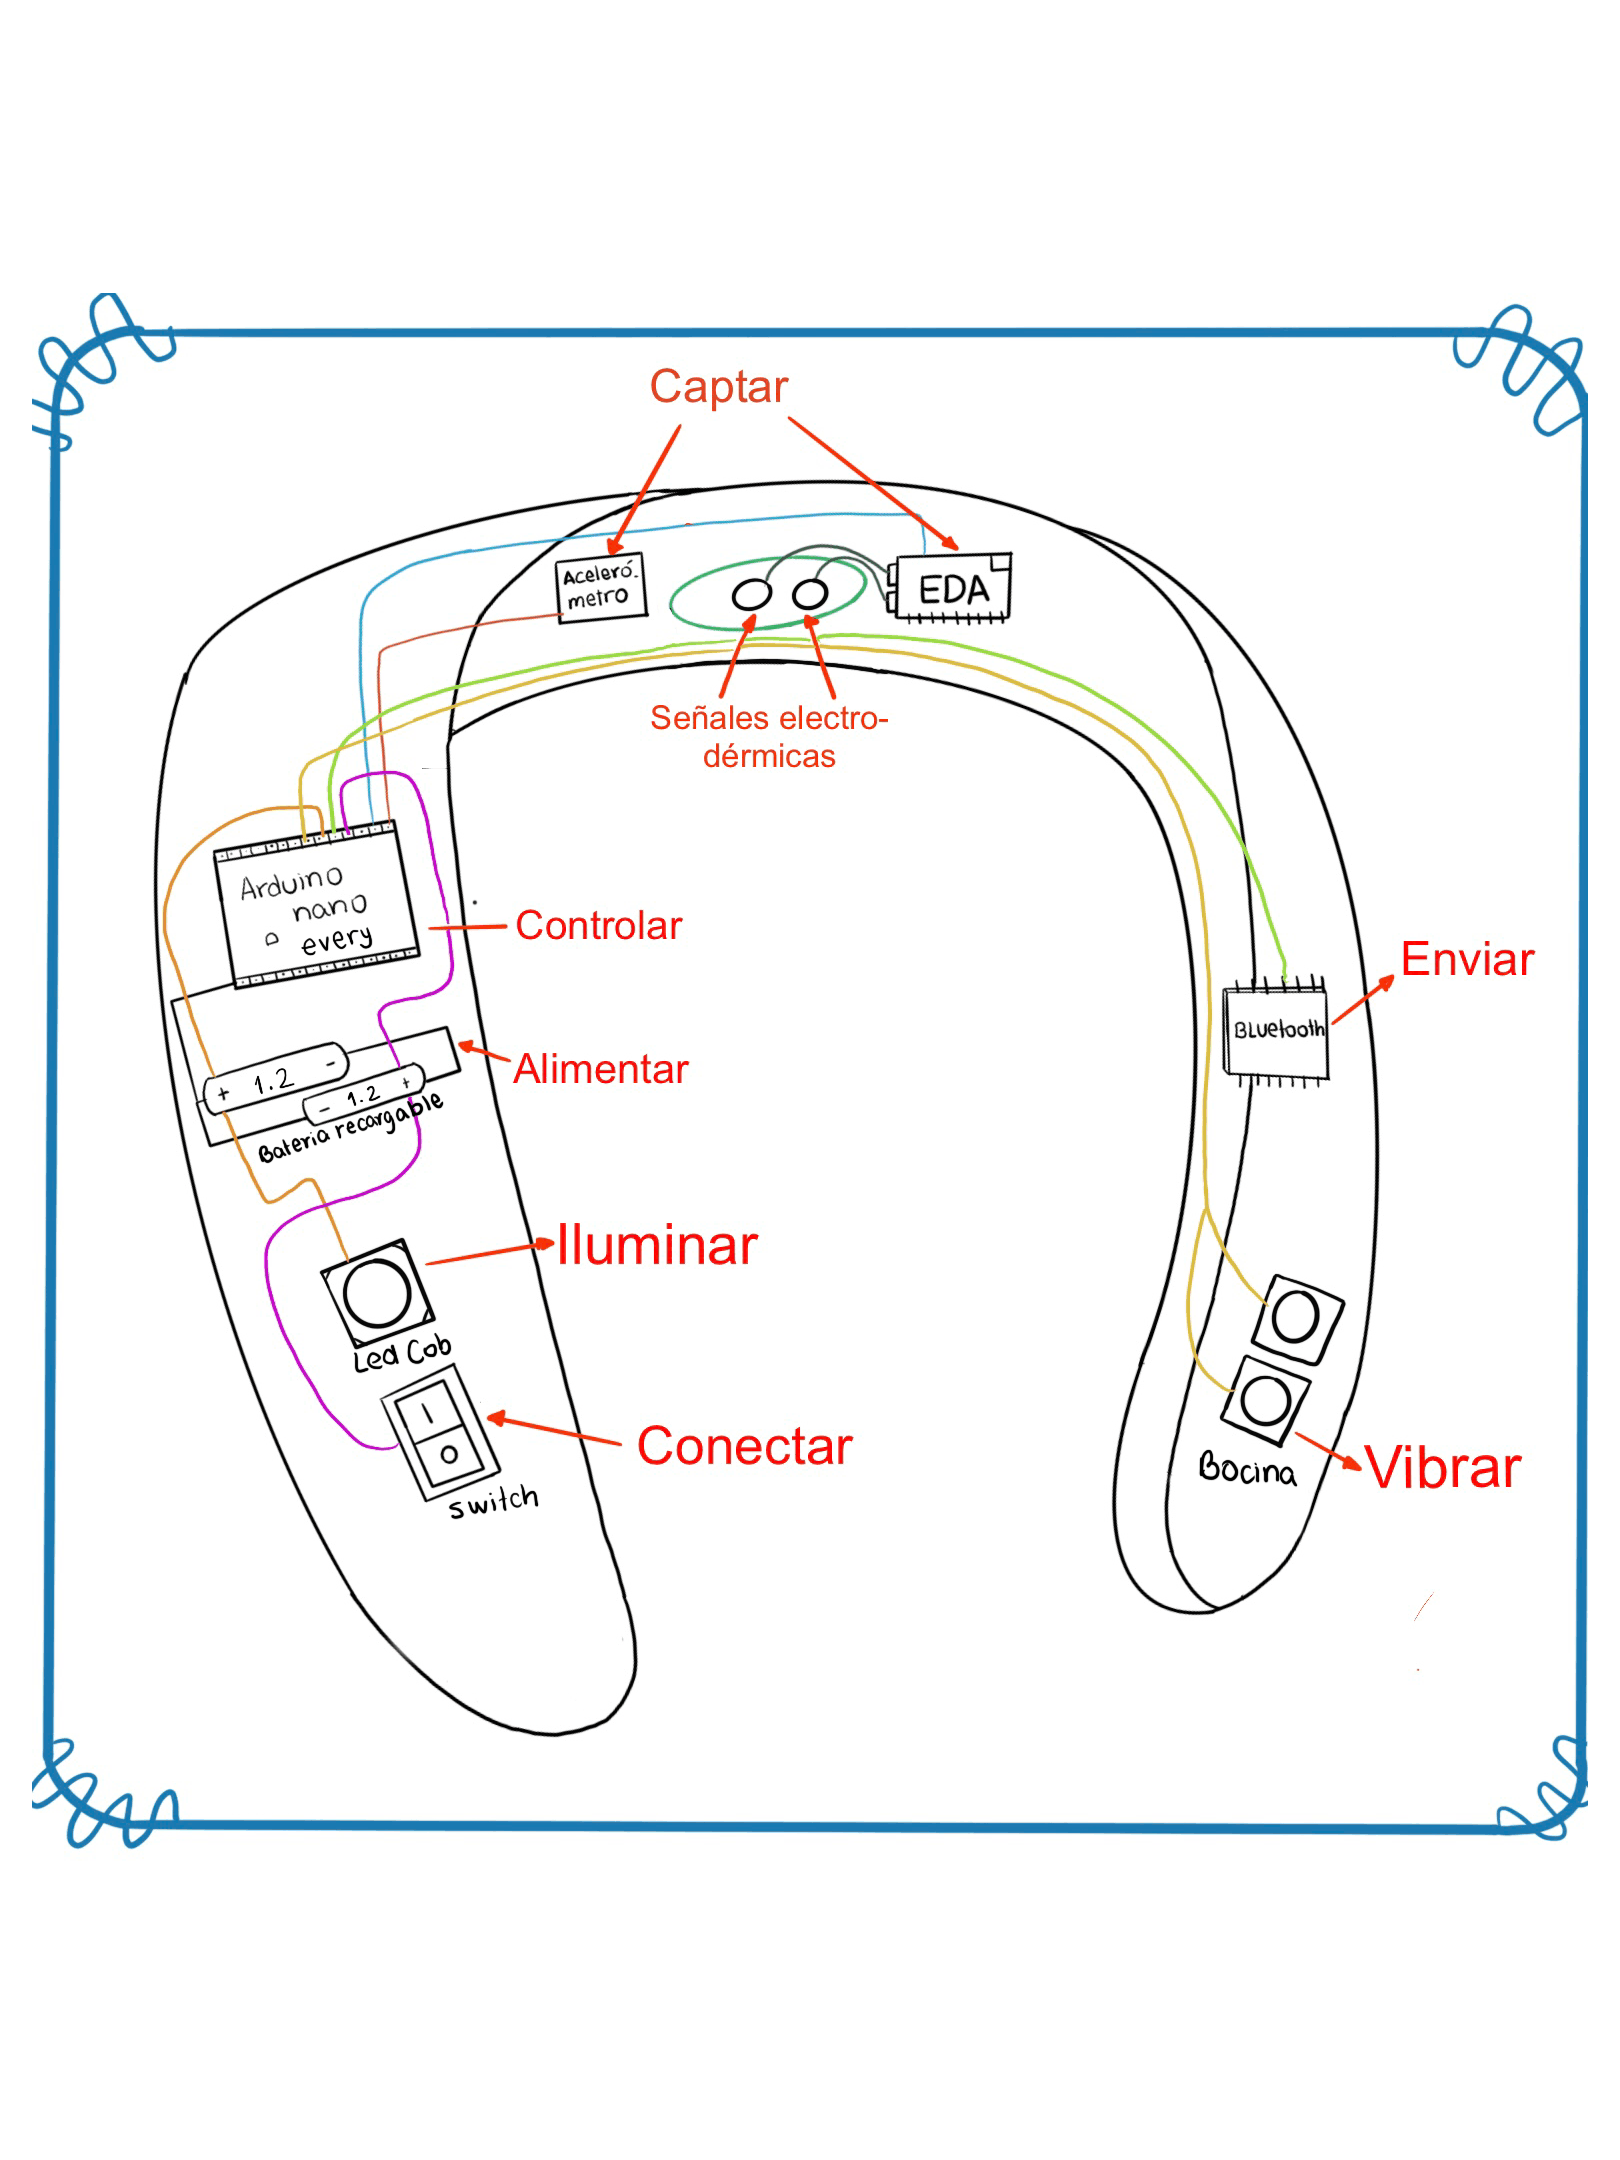 Captar
Aceleró-
metro
EDA
Señales electro-
dérmicas
Arduino
nano
every
Controlar
Enviar
Bluetooth
Alimentar
+ 1.2 -
- 1.2 +
Bateria recargable
Iluminar
Led Cob
Conectar
I
O
switch
Bocina
Vibrar